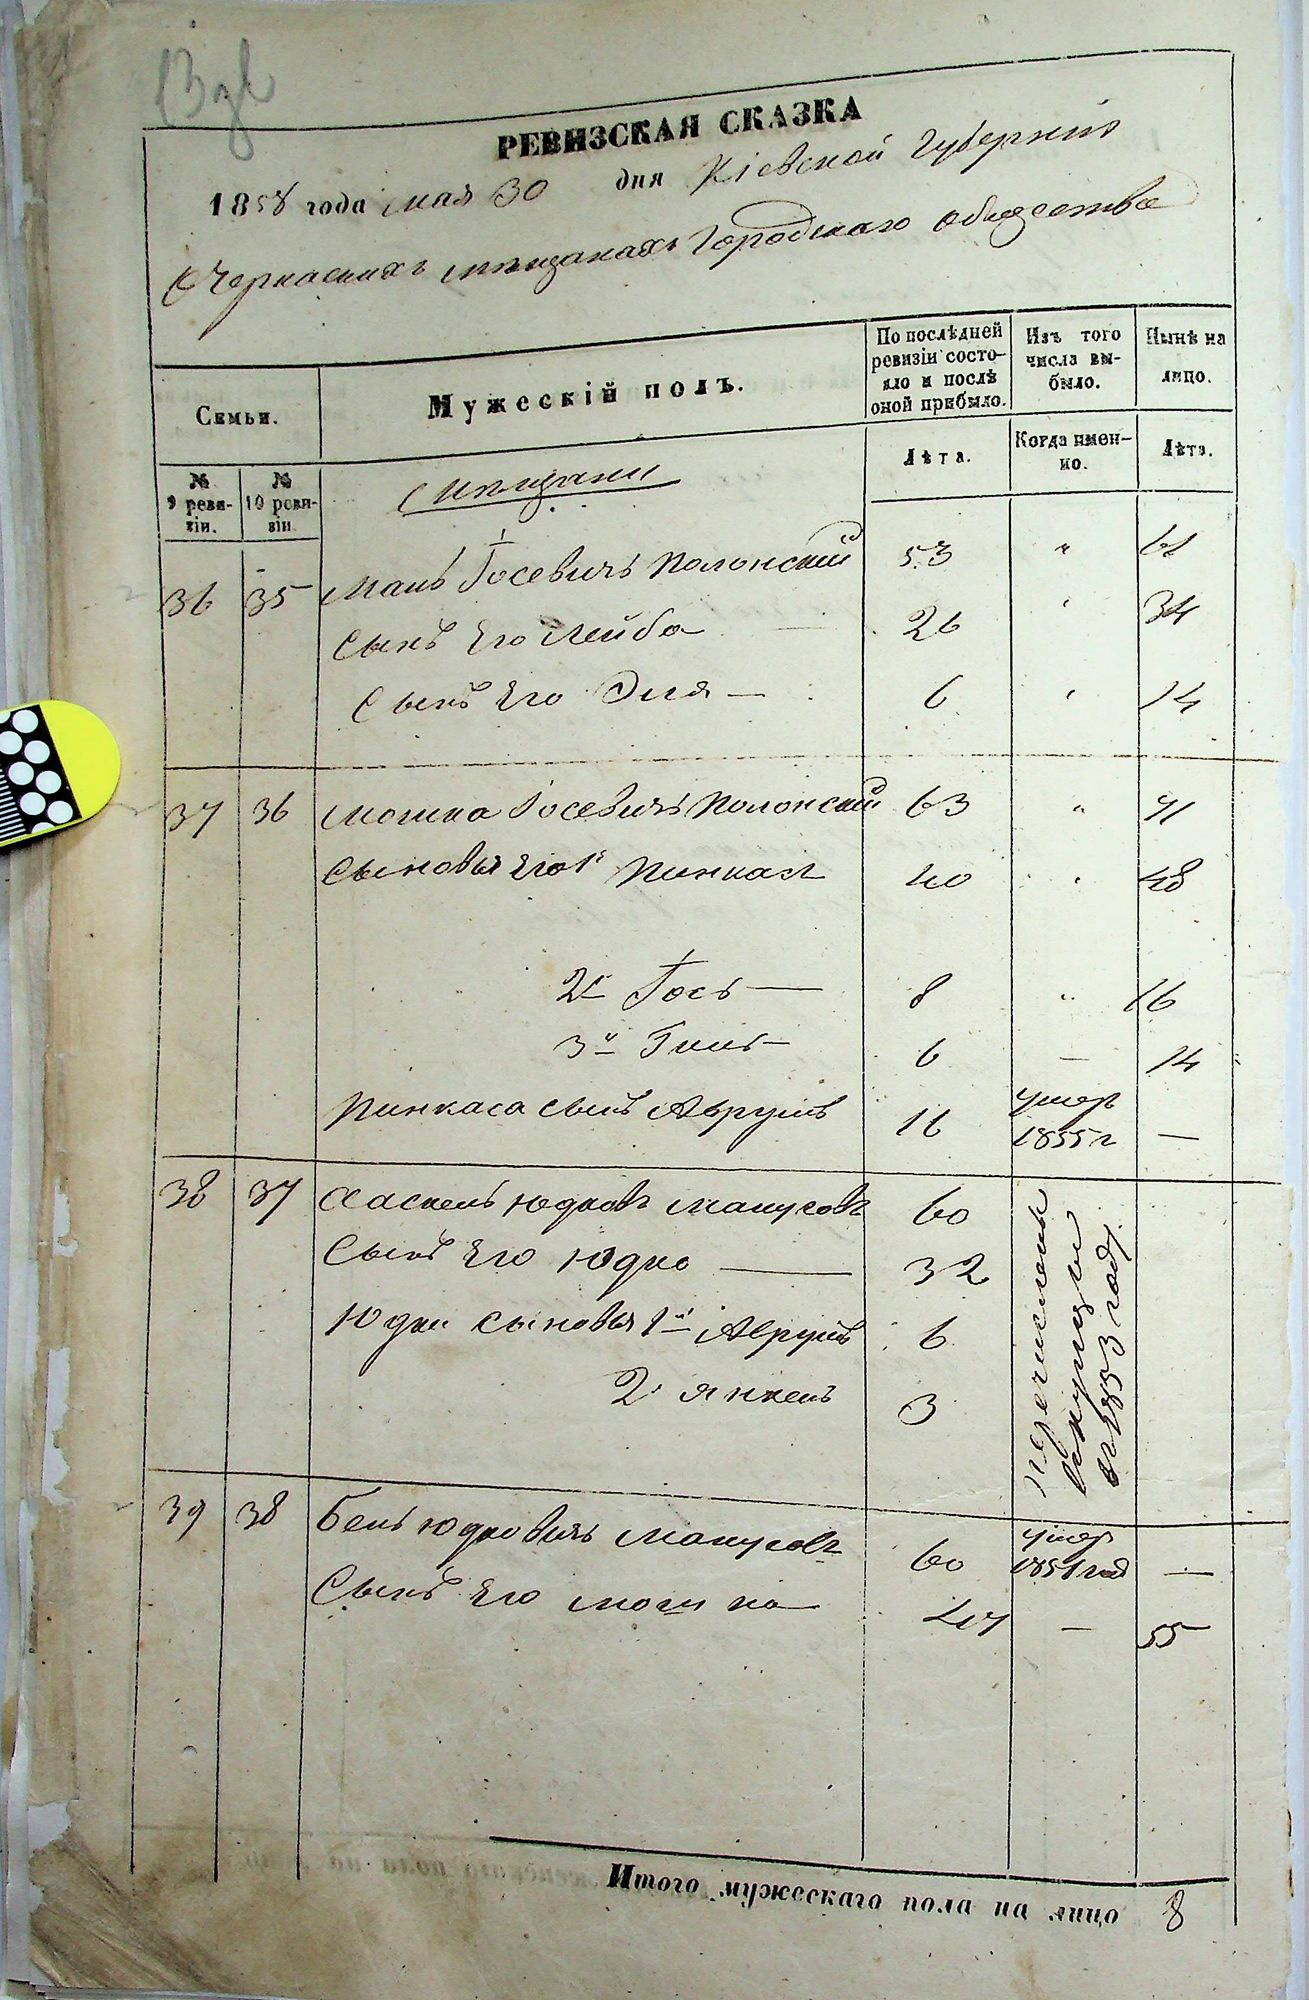 РЕВИЗСКАЯ СКАЗКА
1858 года мая 30 дня Кіевской Губерніи
О Черкаскихъ мѣщанахъ Городскаго общества
Семьи.
Мужескій полъ.
По послѣдней ревизіи состояло и послѣ оной прибыло.
Изъ того числа выбыло.
Нынѣ на лицо.
№ 9 ревизіи.
№ 10 ревизіи
Мѣщани
Лѣта.
Когда именно.
Лѣта.
36 35 Мань Іосевичъ Полонскій 53 " 61
Сынъ Его Лейба — 26 34
Сынъ Его Эля — 6 14
37 36 Мошка Іосевичъ Полонскій 63 " 71
Сыновья Его 1й Пинкас 40 48
2й Іось — 8 " 16
3й 6 — 14
Пинкаса сынъ Аврумъ 16 умеръ 1855 г —
38 37 Хаскель Юдковъ Манусовъ 60
Сынъ Его Юдко — 32
Юдки сыновья 1й Аврумъ 6
2й Янкель 3
перечислены
в 1853 году
39 38 Бень Юдковичъ Манусовъ 60 умер 1851 год —
Сынъ Его Мошка 47 — 55
Итого мужескаго пола на лицо 8